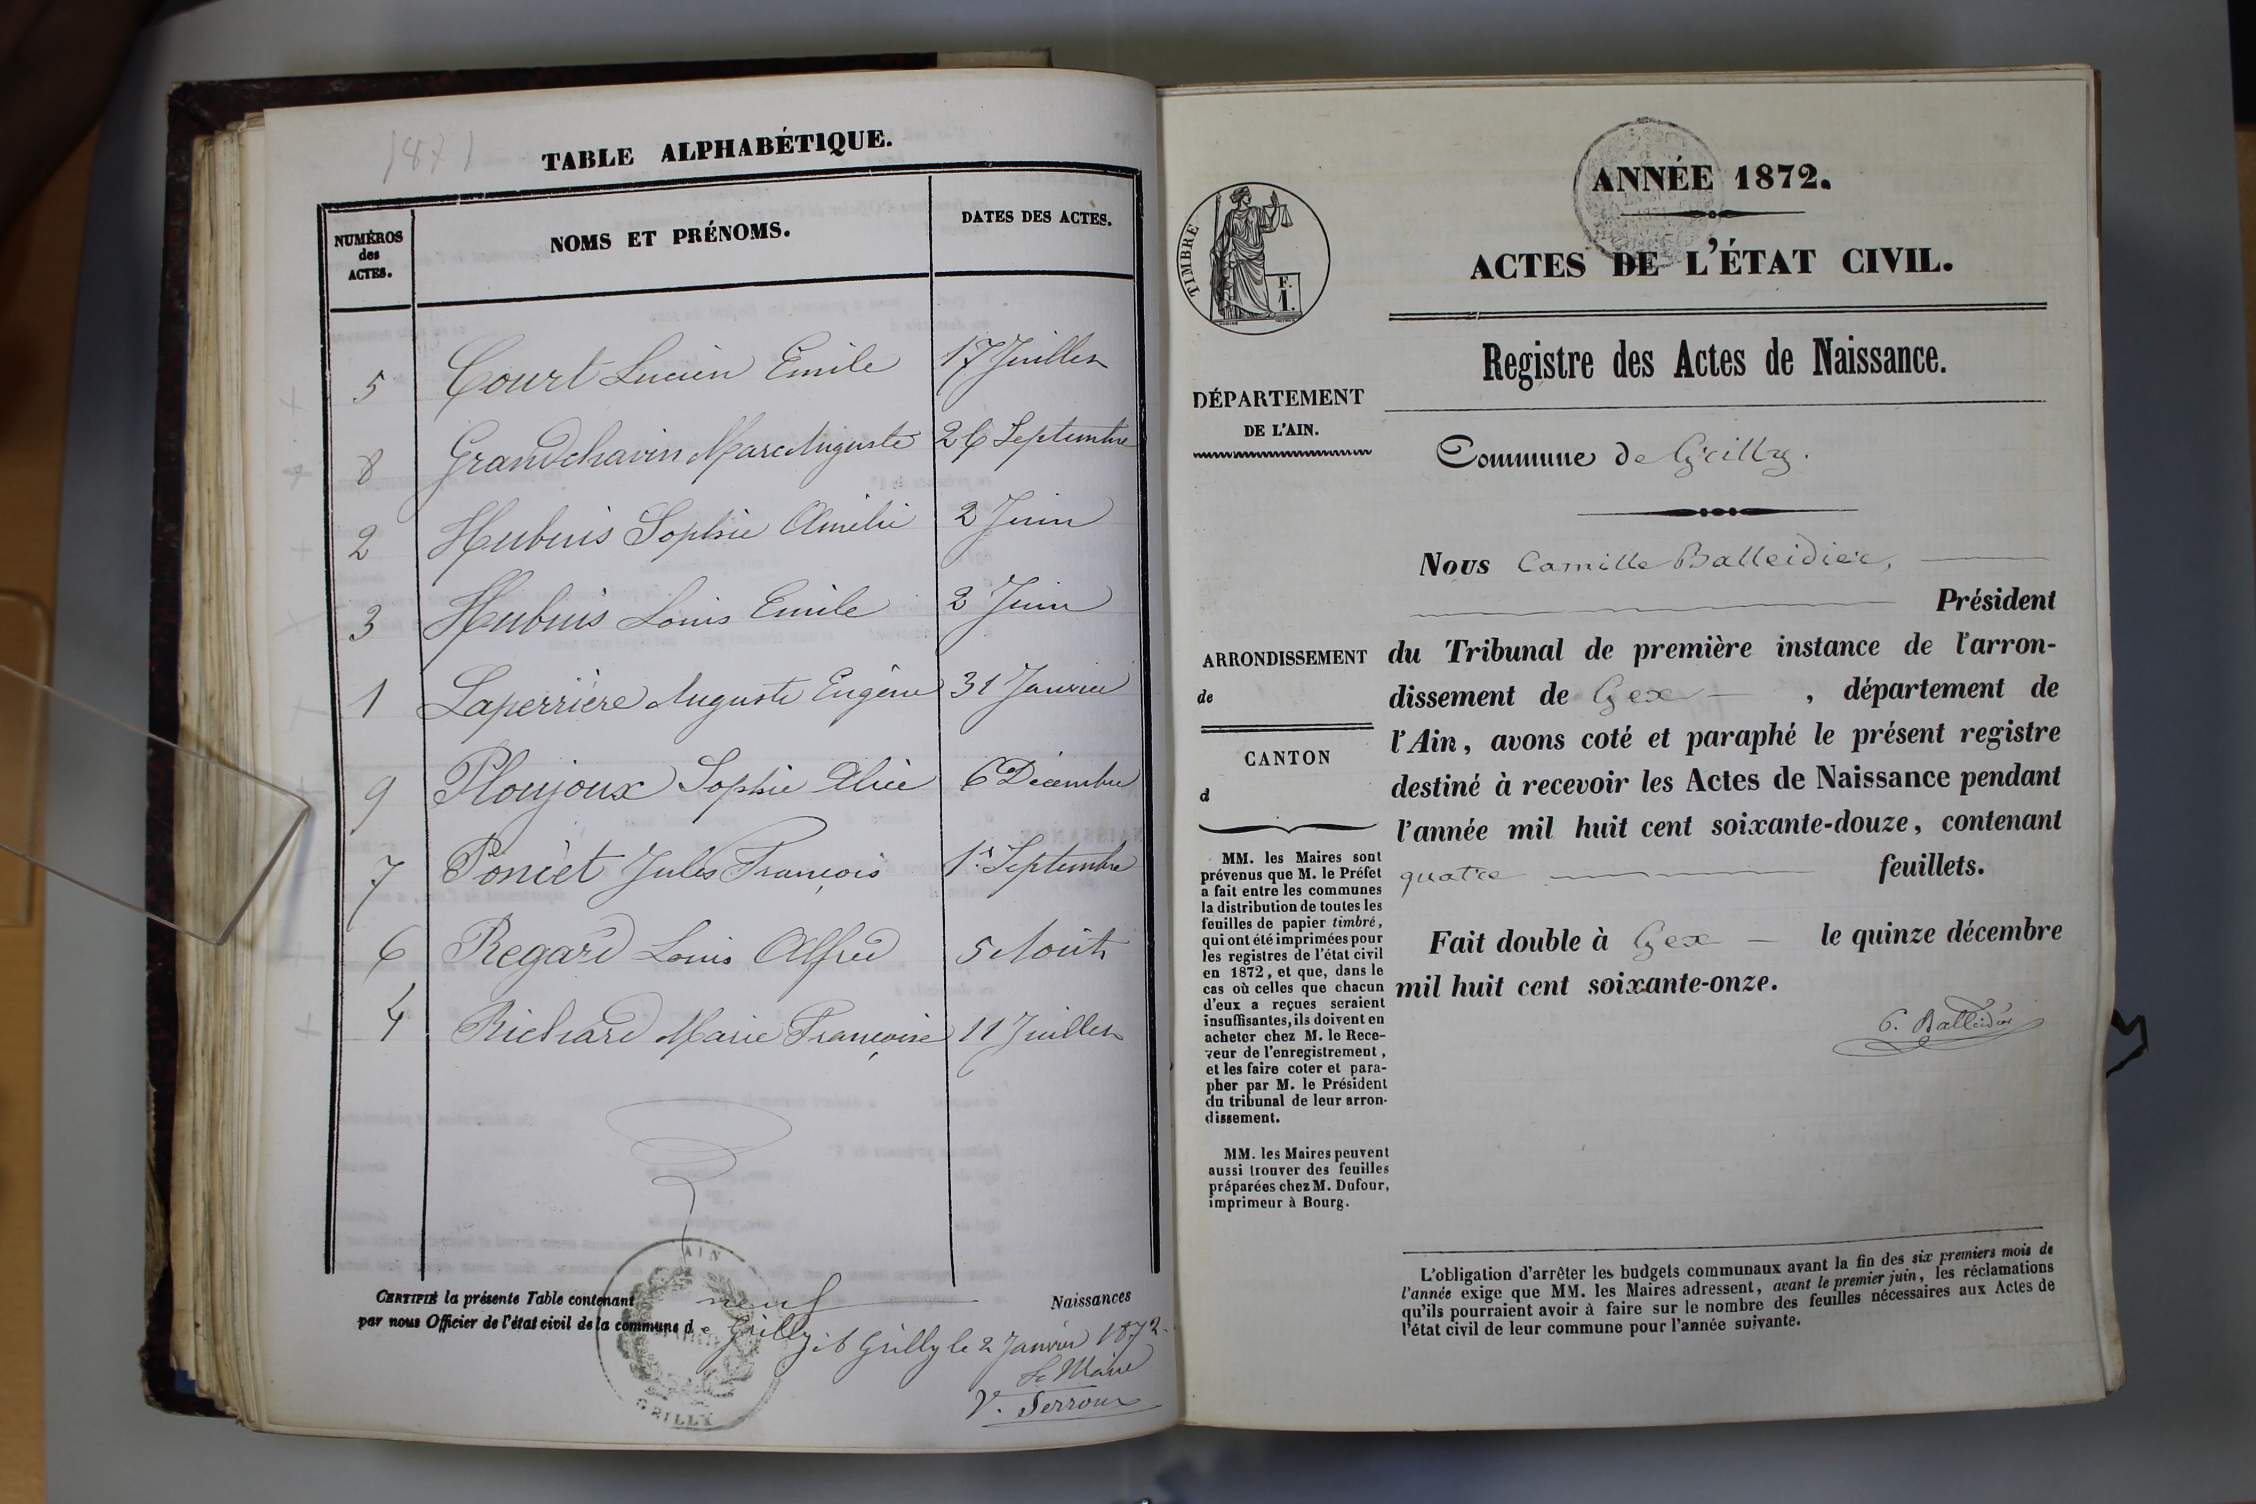 1871
TABLE ALPHABÉTIQUE.
NUMÉROS
des
ACTES.
NOMS ET PRÉNOMS.
DATES DES ACTES.
5 Court Lucien Emile 17 Juillet
8 Grandchavin Marc Auguste 26 Septembre
2 Hubuis Sophie Amélie 2 Juin
3 Hubuis Louis Emile 2 Juin
1 Laperrière Auguste Eugène 31 Janvier
9 Ploujoux Sophie Alice 6 Décembre
7 Poncet Jules François 1er Septembre
6 Regard Louis Alfred 5 Août
4 Richard Marie Françoise 11 Juillet
CERTIFIÉ la présente Table contenant neuf Naissances
par nous Officier de l'état civil de la commune de Grilly. A Grilly le 2 Janvier 1872.
Le Maire
V. Serroux
AIN
GRILLY
ANNÉE 1872.
ACTES DE L'ÉTAT CIVIL.
TIMBRE
F.
1.
Registre des Actes de Naissance.
DÉPARTEMENT
DE L'AIN.
Commune de Grilly.
Nous Camille Balleidier,
Président
du Tribunal de première instance de l'arron-
dissement de Gex, département de
l'Ain, avons coté et paraphé le présent registre
destiné à recevoir les Actes de Naissance pendant
l'année mil huit cent soixante-douze, contenant
quatre feuillets.
Fait double à Gex le quinze décembre
mil huit cent soixante-onze.
C. Balleidier
ARRONDISSEMENT
de
CANTON
d
MM. les Maires sont
prévenus que M. le Préfet
a fait entre les communes
la distribution de toutes les
feuilles de papier timbré,
qui ont été imprimées pour
les registres de l'état civil
en 1872, et que, dans le
cas où celles que chacun
d'eux a reçues seraient
insuffisantes, ils doivent en
acheter chez M. le Rece-
veur de l'enregistrement,
et les faire coter et para-
pher par M. le Président
du tribunal de leur arron-
dissement.
MM. les Maires peuvent
aussi trouver des feuilles
préparées chez M. Dufour,
imprimeur à Bourg.
L'obligation d'arrêter les budgets communaux avant la fin des six premiers mois de
l'année exige que MM. les Maires adressent, avant le premier juin, les réclamations
qu'ils pourraient avoir à faire sur le nombre des feuilles nécessaires aux Actes de
l'état civil de leur commune pour l'année suivante.